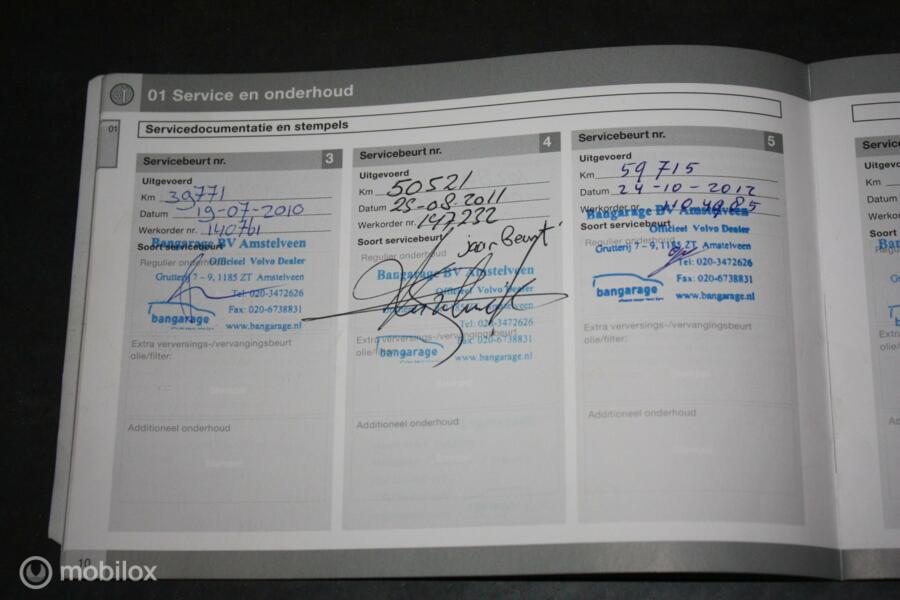 01 Service en onderhoud
01
Servicedocumentatie en stempels
Servicebeurt nr. 3
Uitgevoerd
Km 39771
Datum 19-07-2010
Werkorder nr. 140761
Soort servicebeurt
Regulier onderhoud
Bangarage BV Amstelveen
Officieel Volvo Dealer
Grutterij 7 – 9, 1185 ZT Amstelveen
Tel: 020-3472626
Fax: 020-6738831
bangarage
www.bangarage.nl
Extra verversings-/vervangingsbeurt
olie/filter:
Stempel
Additioneel onderhoud
Stempel
Servicebeurt nr. 4
Uitgevoerd
Km 50521
Datum 23-08-2011
Werkorder nr. 147232
Soort servicebeurt
jaar Beurt
Regulier onderhoud
Bangarage BV Amstelveen
Officieel Volvo Dealer
Tel: 020-3472626
Fax: 020-6738831
Extra verversings-/vervangingsbeurt
olie/filter:
bangarage
www.bangarage.nl
Stempel
Additioneel onderhoud
Servicebeurt nr. 5
Uitgevoerd
Km 59715
Datum 24-10-2012
Werkorder nr.
Bangarage BV Amstelveen
Soort servicebeurt
Officieel Volvo Dealer
Regulier onderhoud
Grutterij 7 – 9, 1185 ZT Amstelveen
Tel: 020-3472626
Fax: 020-6738831
bangarage
www.bangarage.nl
Extra verversings-/vervangingsbeurt
olie/filter:
Stempel
Additioneel onderhoud
10
mobilox